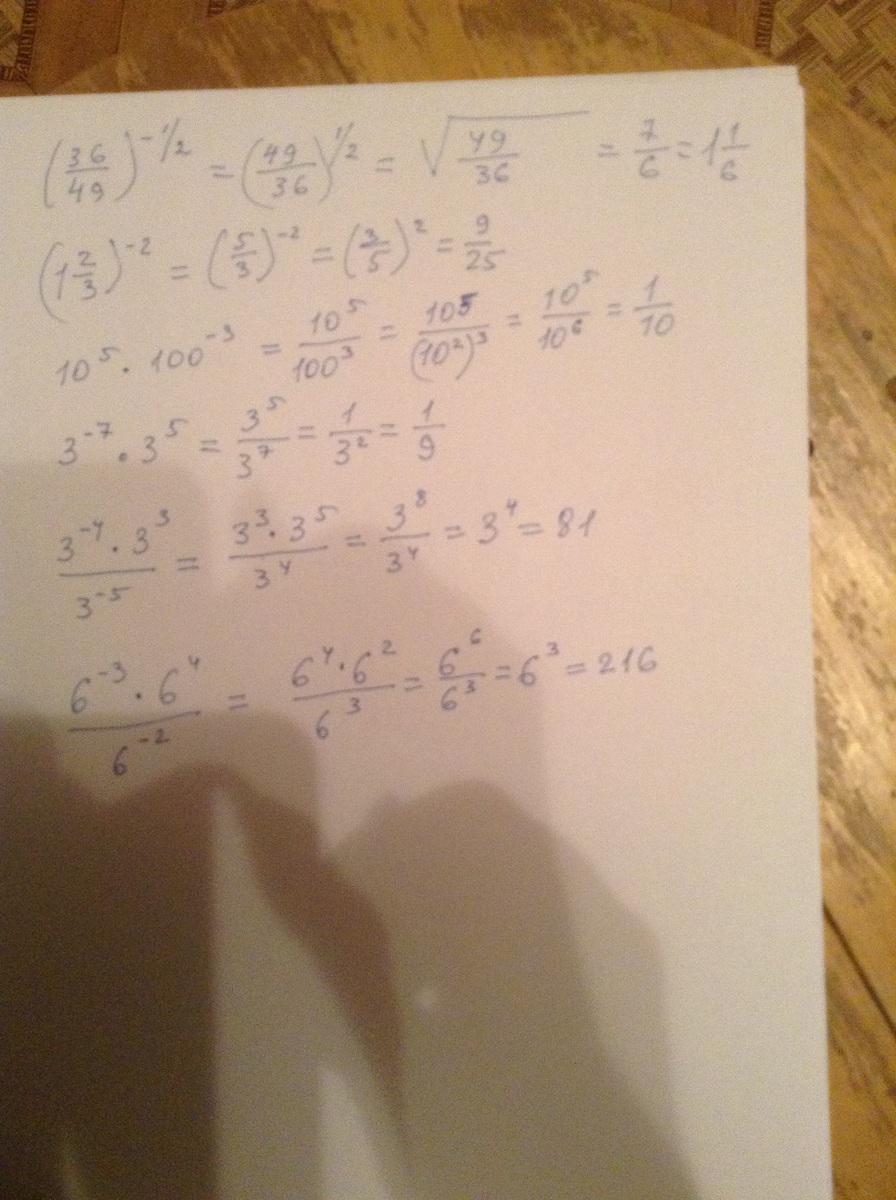 (36/49)^-1/2 = (49/36)^1/2 = √(49/36) = 7/6 = 1 1/6
(1 2/3)^-2 = (5/3)^-2 = (3/5)^2 = 9/25
10^5 · 100^-3 = 10^5/100^3 = 10^5/(10^2)^3 = 10^5/10^6 = 1/10
3^-7 · 3^5 = 3^5/3^7 = 1/3^2 = 1/9
(3^-4 · 3^3)/3^-5 = (3^3 · 3^5)/3^4 = 3^8/3^4 = 3^4 = 81
(6^-3 · 6^4)/6^-2 = (6^4 · 6^2)/6^3 = 6^6/6^3 = 6^3 = 216